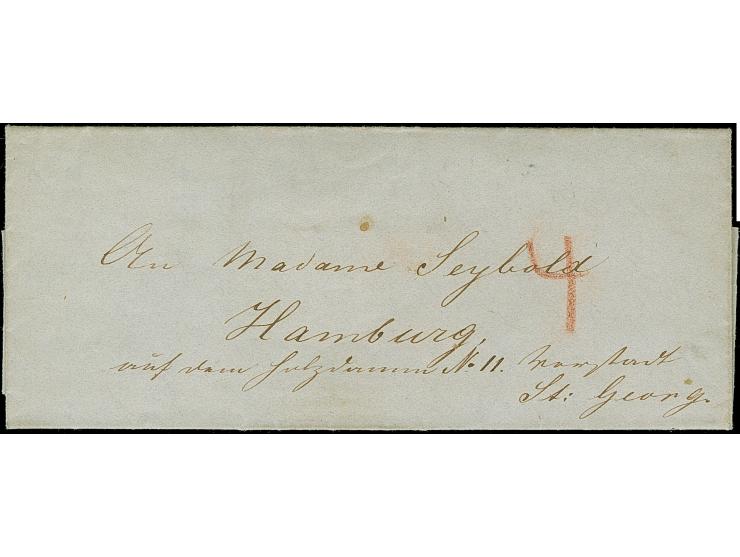 An Madame Seybold
4
Hamburg,
auf dem Holzdamm No 11. Vorstadt
St: Georg.